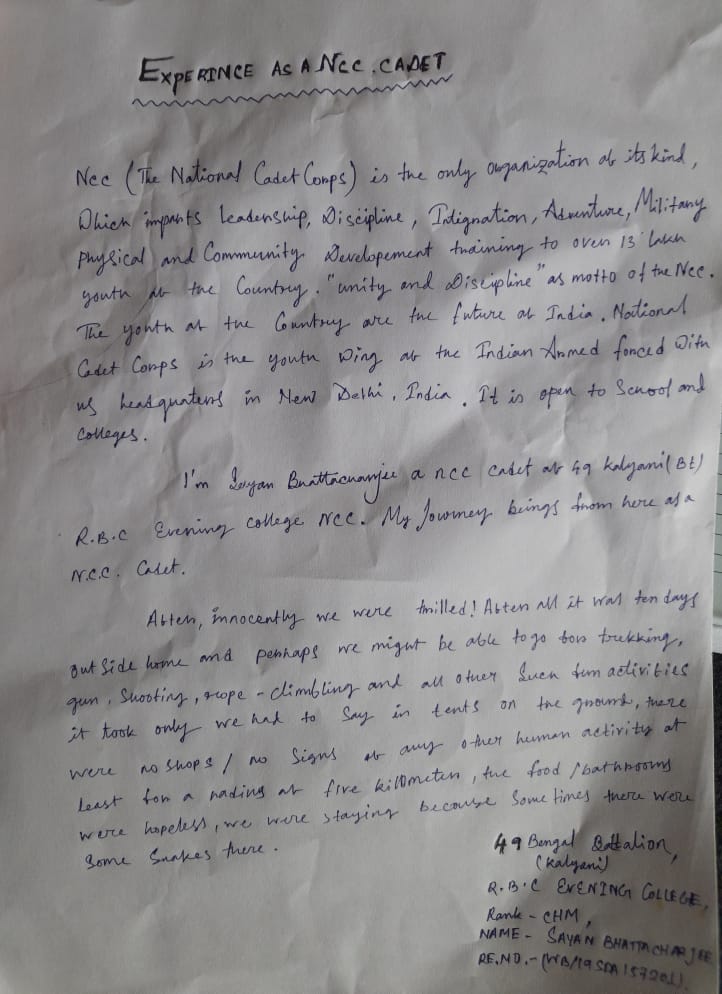 EXPERINCE AS A NCC. CADET
NCC (The National Cadet Corps) is the only organization of its kind,
Which imparts leadership, Discipline, Intignation, Adventure, Military
physical and Community Developement training to over 13 lakh
youth of the Country. "unity and Discipline" as motto of the NCC.
The youth of the Country are the future of India. National
Cadet Corps is the youth Wing of the Indian Armed forced With
its headquaters in New Delhi, India. It is open to School and
Colleges.
I'm Sayan Bhattacharjee a ncc cadet of 49 kalyani(Bt)
R.B.C Evening college NCC. My Journey beings from here as a
N.C.C. Cadet.
After, innocently we were thrilled! After all it was ten days
out side home and perhaps we might be able to go for trekking,
gun, Shooting, rope-climbling and all other Such fun activities
it took only we had to Say in tents on the ground, there
were no shops / no Signs of any other human activity at
least for a rading of five kilometer, the food /bathrooms
were hopeless, we were staying becouse Some times there were
Some Snakes there.
49 Bengal Battalion,
(Kalyani)
R.B.C EVENING COLLEGE,
Rank - CHM,
NAME - SAYAN BHATTACHARJEE
RE.NO.-(WB/19SDA